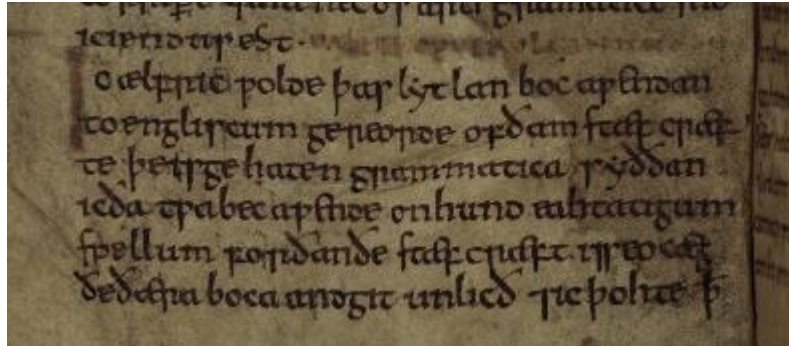 iciendo tur est.
Ic ælfric ƿolde þas lytlan boc aƿendan
to engliscum gereorde of ðam stæfcræf
te þe is gehaten grammatica syððan
ic ða tƿa bec aƿende on hund eahtatigum
spellum forðan ðe stæfcræft is seo cæg
ðe ðæra boca andgit unlicð ⁊ ic þohte ꝥ